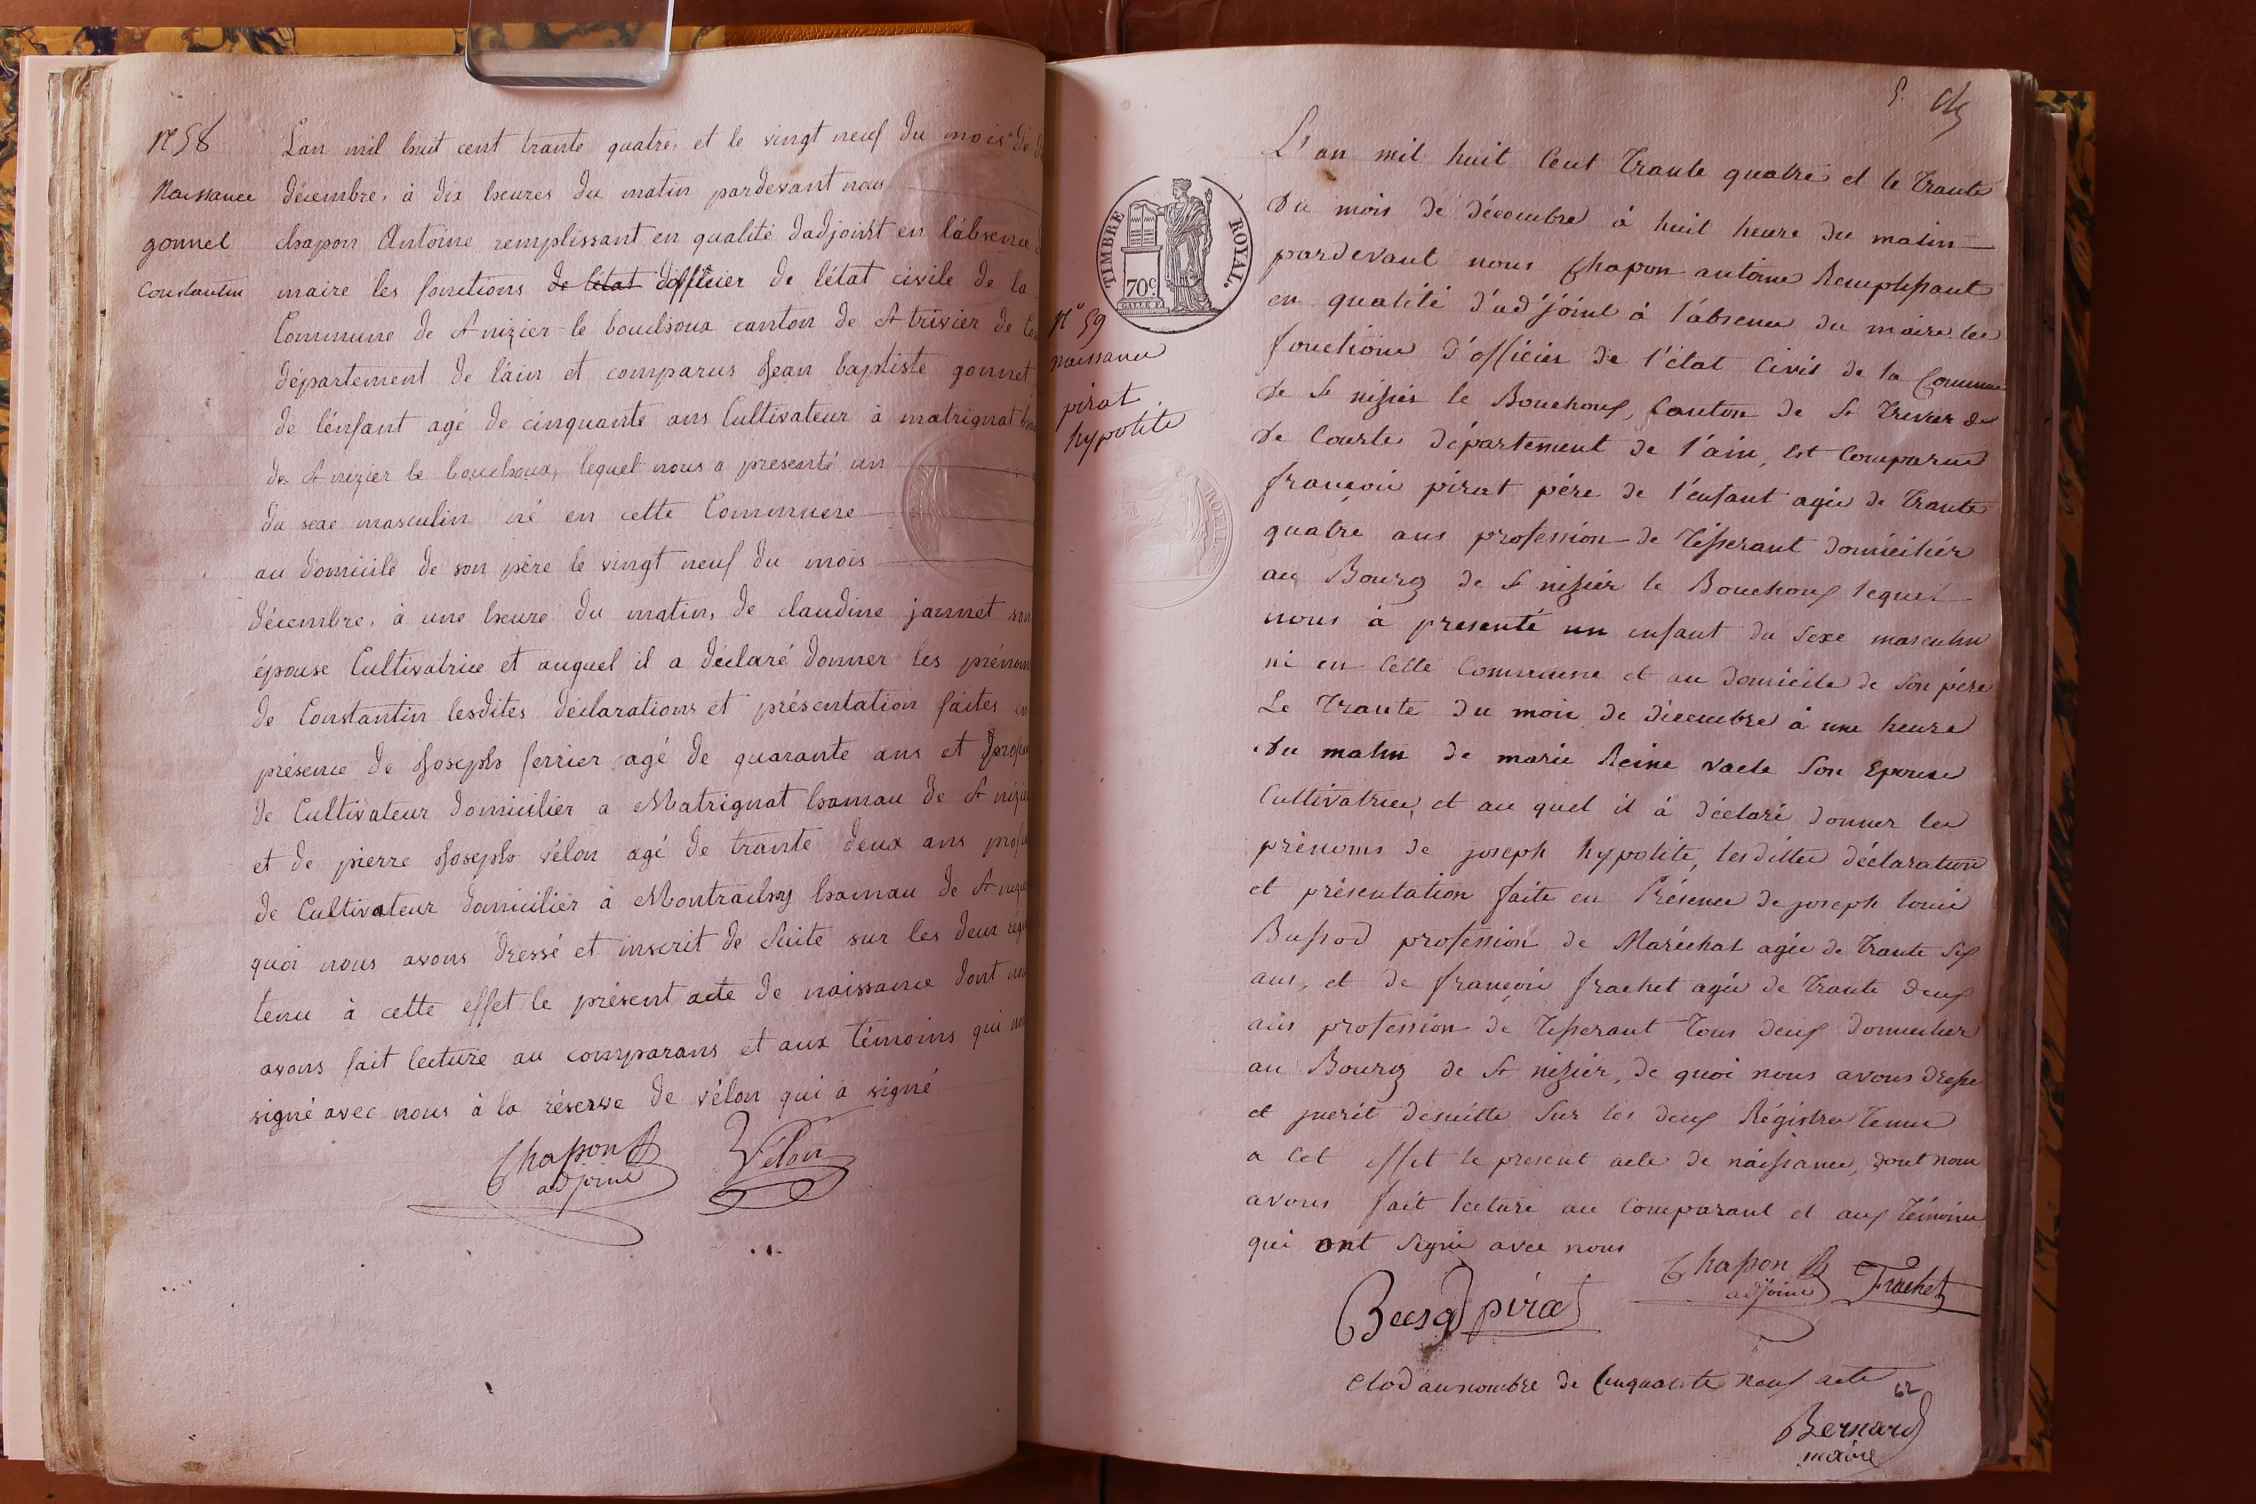 N 58
Naissance
gonnet
Constantin
L'an mil huit cent trante quatre, et le vingt neuf du mois de
décembre, à dix heures du matin pardevant nous
chapon Antoine remplissant en qualité dadjoint en l'absence
maire les fonctions de l'état dofficier de l'état civile de la
Commune de St nizier le bouchoux canton de St trivier de
département de l'ain et comparus Jean baptiste gonnet
de l'enfant agé de cinquante ans Cultivateur à matrignat
de St nizier le bouchoux, lequel nous a presenté un
du sexe masculin né en cette Commune
au domicile de son père le vingt neuf du mois
décembre, à une heure du matin, de claudine jannet son
épouse Cultivatrice et auquel il a déclaré donner les prénom
de Constantin lesdites déclarations et présentation faites
présence de Joseph ferrier agé de quarante ans et
de Cultivateur domicilier a Matrignat hamau de St
et de pierre Joseph vélon agé de trante deux ans
de Cultivateur domicilier à hamau de St
quoi nous avons dressé et inscrit de suite sur les deux
tenu à cette effet le présent acte de naissance dont
avons fait lecture au comparans et aux témoins qui
signé avec nous à la réserve de vélon qui a signé
Chapon
adjoint
Vélon
TIMBRE ROYAL.
70c
n° 59
naissance
pirat
hypolite
L'an mil huit Cent Trante quatre et le Trante
du mois de décembre à huit heure du matin
pardevant nous Chapon antoine Remplissant
en qualité d'adjoint à l'absence du maire les
fonctions d'officier de l'état Civil de la Commune
de St nisier le Bouchoux, Canton de St Trivier de
de Courte département de l'ain, Est Comparus
françois pirat père de l'enfant agée de Trante
quatre ans profession de Tisserant domicilier
au Bourg de St nisier le Bouchoux lequel
nous à presenté un enfant du Sexe masculin
né en Cette Commune et au domicile de Son père
Le Trante du mois de décembre à une heure
du matin de marie Reine Son Epouse
Cultivatrice, et au quel il à déclaré donner les
prénoms de joseph hypolite, lesdittes déclaration
et présentation faite en Présence de joseph louis
Bussod profession de Maréchal agée de Trante Six
ans, et de françois frachet agée de Trante deux
ans profession de Tisserant Tous deux domicilier
au Bourg de St nisier, de quoi nous avons dressé
et inscrit desuitte Sur les deux Régistres Tenue
a Cet effet le present acte de naissance, dont nous
avons fait lecture au Comparant et aux Témoins
qui ont Signé avec nous
Chapon
adjoint
Frachet
pirat
Clod au nombre de Cinquante neuf acte
62
Bernard
maire